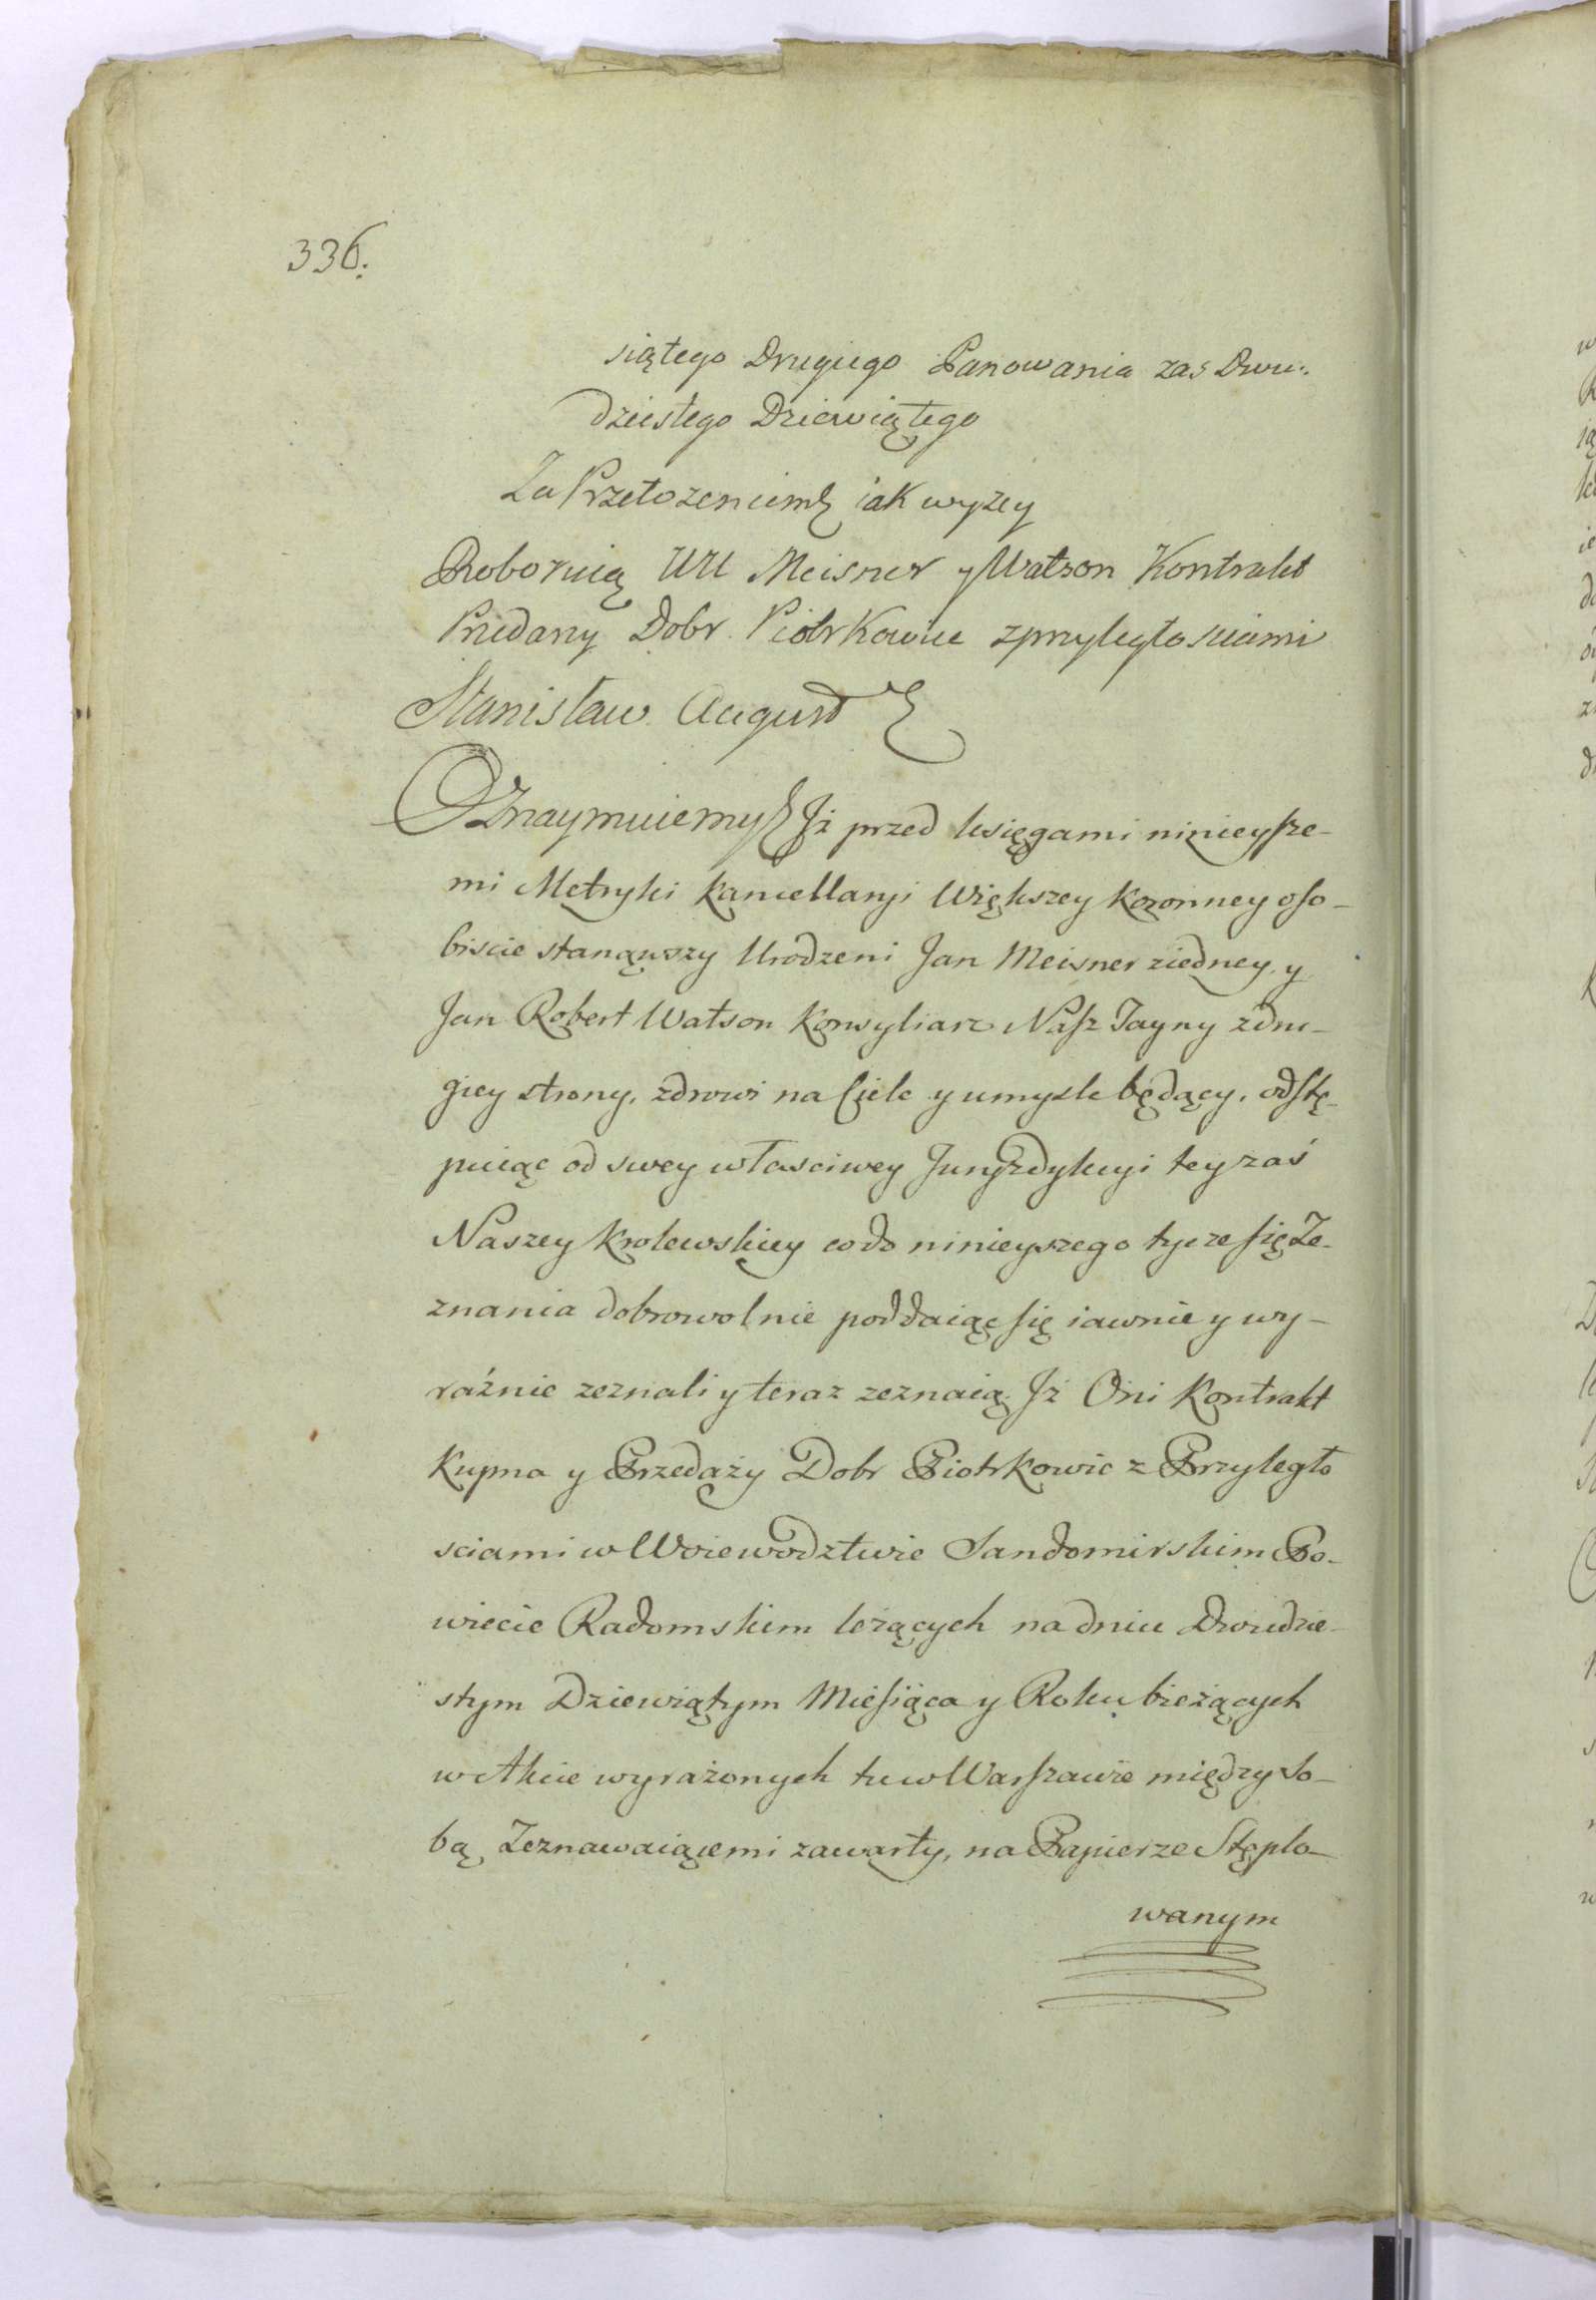 336.
siątego Drugiego Panowania zas Dwu-
dziestego Dziewiątego
Za Przełozeniem jak wyzey
Roboruią UU Meisner y Watson Kontrakt
Przedazy Dobr Piotrkowice z przyległosciami
Stanisław August
Oznaymuiemy Jż przed księgami ninieysze-
mi Metryki Kancellaryi Większey Koronney oso-
biscie stanąwszy Urodzeni Jan Meisner ziedney y
Jan Robert Watson Konsyliarz Nasz Tayny zdru-
giey strony, zdrowi na ciele y umysle będący, odstę-
puiąc od swey własciwey Juryzdykcyi tey zaś
Naszey Krolewskiey co do ninieyszego tycze się Ze-
znania dobrowolnie poddaiąc się iawnie y wy-
raźnie zeznali y teraz zeznaią. Jż Oni Kontrakt
Kupna y Przedaży Dobr Piotrkowic z Przyległo
sciami w Woiewodztwie Sandomirskim Po-
wiecie Radomskim leżących na dniu Dwudzie-
stym Dziewiątym Miesiąca y Roku bieżących
w Akcie wyrażonych tu w Warszawie między So-
bą Zeznawaiącemi zawarty, na Papierze Stęplo-
wanym